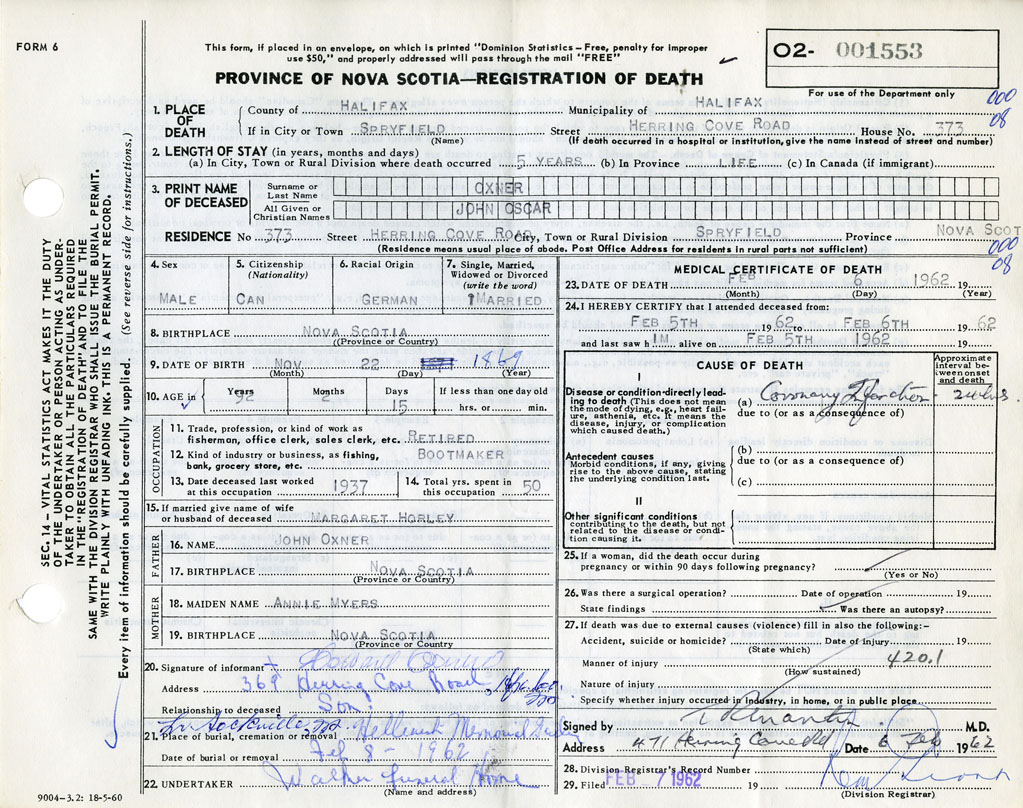 FORM 6
This form, if placed in an envelope, on which is printed "Dominion Statistics – Free, penalty for improper
use $50," and properly addressed will pass through the mail "FREE"
PROVINCE OF NOVA SCOTIA—REGISTRATION OF DEATH
02- 001553
For use of the Department only
000
08
1. PLACE OF DEATH
County of HALIFAX Municipality of HALIFAX
If in City or Town SPRYFIELD Street HERRING COVE ROAD House No. 373
(Name) (If death occurred in a hospital or institution, give name instead of street and number)
2. LENGTH OF STAY (in years, months and days)
(a) In City, Town or Rural Division where death occurred 5 YEARS (b) In Province LIFE (c) In Canada (if immigrant)
3. PRINT NAME OF DECEASED
Surname or Last Name OXNER
All Given or Christian Names JOHN OSCAR
RESIDENCE No 373 Street HERRING COVE ROAD City, Town or Rural Division SPRYFIELD Province NOVA SCOT
(Residence means usual place of abode. Post Office Address for residents in rural parts not sufficient)
000
08
4. Sex
MALE
5. Citizenship (Nationality)
CAN
6. Racial Origin
GERMAN
7. Single, Married, Widowed or Divorced (write the word)
MARRIED
8. BIRTHPLACE NOVA SCOTIA
(Province or Country)
9. DATE OF BIRTH NOV 22 1869
(Month) (Day) (Year)
10. AGE in Years 92 Months 2 Days 15 If less than one day old
hrs. or min.
OCCUPATION
11. Trade, profession, or kind of work as
fisherman, office clerk, sales clerk, etc. RETIRED
12. Kind of industry or business, as fishing,
bank, grocery store, etc. BOOTMAKER
13. Date deceased last worked at this occupation 1937
14. Total yrs. spent in this occupation 50
15. If married give name of wife
or husband of deceased MARGARET HORLEY
FATHER
16. NAME JOHN OXNER
17. BIRTHPLACE NOVA SCOTIA
(Province or Country)
MOTHER
18. MAIDEN NAME ANNIE MYERS
19. BIRTHPLACE NOVA SCOTIA
(Province or Country
20. Signature of informant + Oxner
Address 368 Herring Cove Road
Relationship to deceased Son
21. Place of burial, cremation or removal Memorial
Date of burial or removal Feb 8 - 1962
22. UNDERTAKER Walker Funeral Home
(Name and address)
9004–3.2: 18-5-60
MEDICAL CERTIFICATE OF DEATH
23. DATE OF DEATH FEB 6 1962 19
(Month) (Day) (Year)
24. I HEREBY CERTIFY that I attended deceased from:
FEB 5TH 1962 to FEB 6TH 1962
and last saw h IM alive on FEB 5TH 1962 19
CAUSE OF DEATH
Approximate interval between onset and death
I
Disease or condition directly leading to death (This does not mean the mode of dying, e.g., heart failure, asthenia, etc. It means the disease, injury, or complication which caused death.)
(a) Coronary Infarction - 24 hrs
due to (or as a consequence of)
Antecedent causes
Morbid conditions, if any, giving rise to the above cause, stating the underlying condition last.
(b)
due to (or as a consequence of)
(c)
II
Other significant conditions
contributing to the death, but not related to the disease or condition causing it.
25. If a woman, did the death occur during
pregnancy or within 90 days following pregnancy?
(Yes or No)
26. Was there a surgical operation? Date of operation 19
State findings Was there an autopsy?
27. If death was due to external causes (violence) fill in also the following:–
Accident, suicide or homicide? Date of injury 19
(State which)
Manner of injury 420.1
(How sustained)
Nature of injury
Specify whether injury occurred in Industry, in home, or in public place
Signed by M.D.
Address 471 Herring Cove Rd Date 6 Feb 1962
28. Division Registrar's Record Number
29. Filed FEB 7 1962 19
(Division Registrar)
SEC. 14 – VITAL STATISTICS ACT MAKES IT THE DUTY
OF THE UNDERTAKER OR PERSON ACTING AS UNDER-
TAKER TO OBTAIN ALL THE PARTICULARS REQUIRED
IN THE "REGISTRATION OF DEATH" AND TO FILE THE
SAME WITH THE DIVISION REGISTRAR WHO SHALL ISSUE THE BURIAL PERMIT.
WRITE PLAINLY WITH UNFADING INK. THIS IS A PERMANENT RECORD.
Every item of information should be carefully supplied. (See reverse side for instructions.